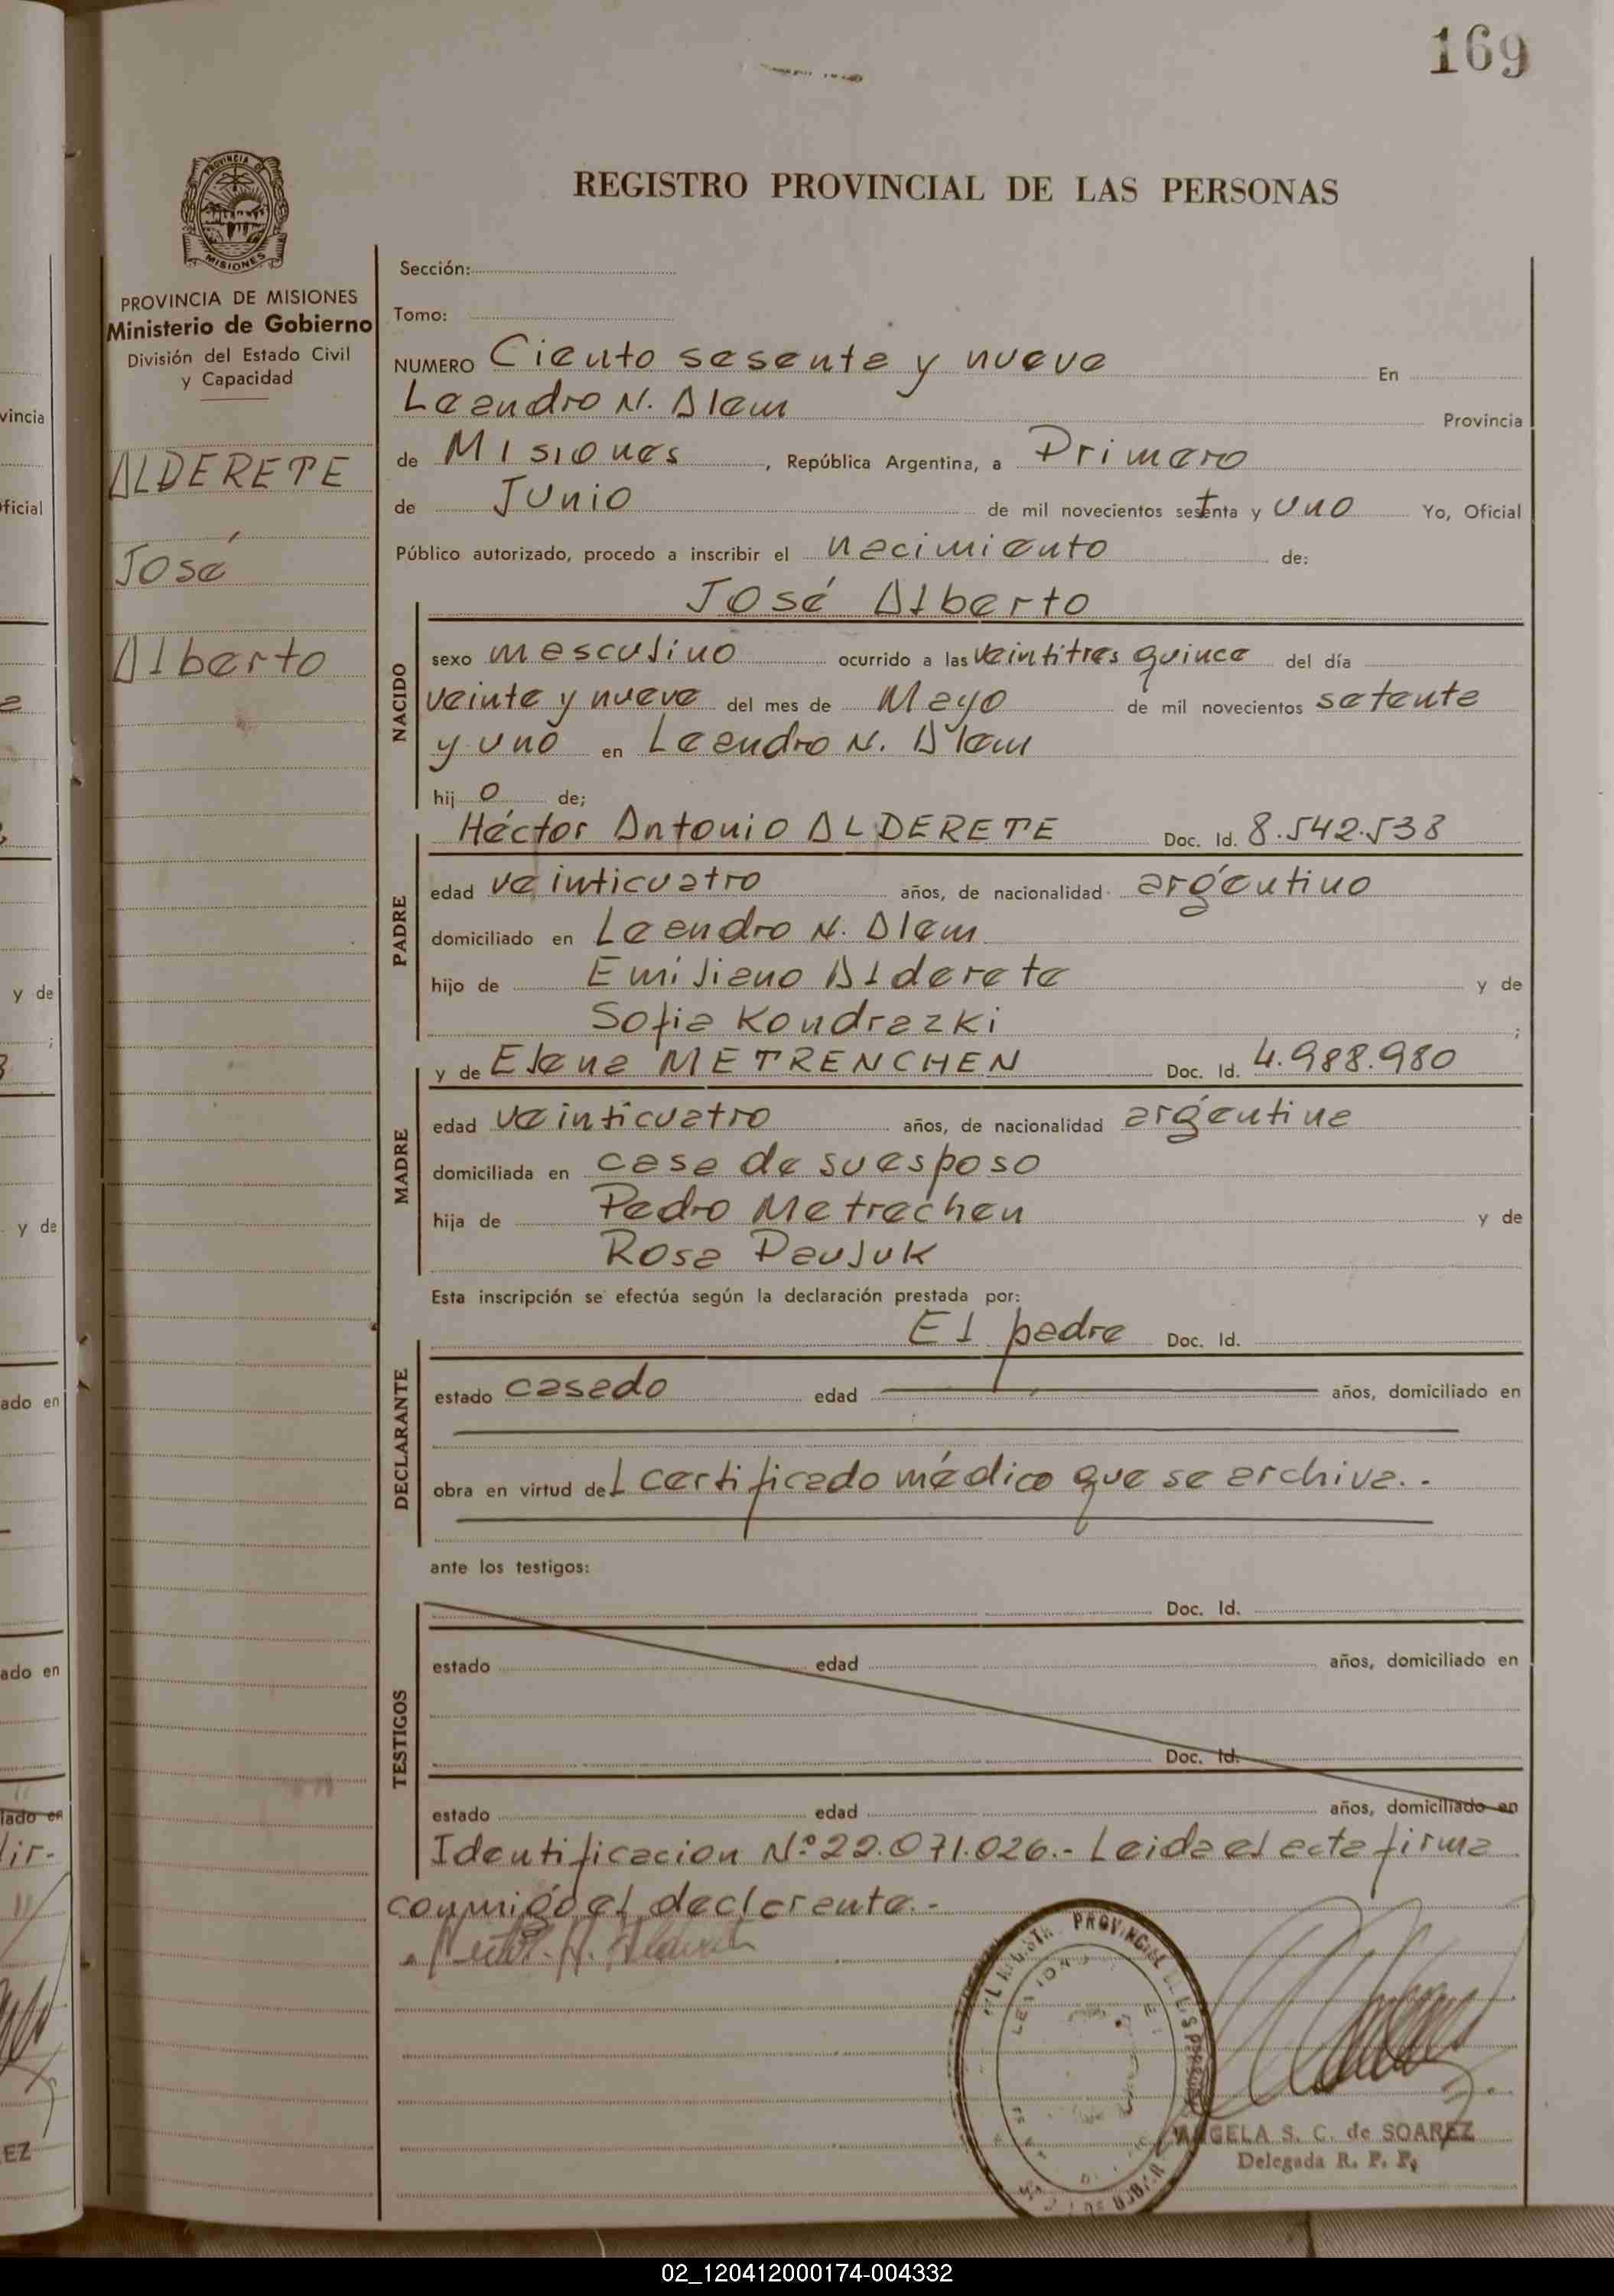 169
REGISTRO PROVINCIAL DE LAS PERSONAS
PROVINCIA DE
MISIONES
PROVINCIA DE MISIONES
Ministerio de Gobierno
División del Estado Civil
y Capacidad
ALDERETE
José
Alberto
Sección:
Tomo:
NUMERO Ciento sesenta y nueve En
Leandro N. Alem Provincia
de Misiones, República Argentina, a Primero
de Junio de mil novecientos setenta y uno Yo, Oficial
Público autorizado, procedo a inscribir el nacimiento de:
José Alberto
NACIDO
sexo masculino ocurrido a las veintitres quince del día
veinte y nueve del mes de Mayo de mil novecientos setenta
y uno en Leandro N. Alem
hij o de;
Héctor Antonio ALDERETE Doc. Id. 8.542.538
PADRE
edad veinticuatro años, de nacionalidad argentino
domiciliado en Leandro N. Alem
hijo de Emiliano Alderete y de
Sofia Kondrazki ;
y de Elena METRENCHEN Doc. Id. 4.988.980
MADRE
edad veinticuatro años, de nacionalidad argentina
domiciliada en casa de su esposo
hija de Pedro Metrechen y de
Rosa Pauluk
Esta inscripción se efectúa según la declaración prestada por:
El padre Doc. Id.
DECLARANTE
estado casado edad años, domiciliado en
obra en virtud del certificado médico que se archiva.-
ante los testigos:
TESTIGOS
Doc. Id.
estado edad años, domiciliado en
Doc. Id.
estado edad años, domiciliado en
Identificacion Nº 22.071.026.- Leida el acta firma
conmigo el declarante.-
ANGELA S. C. de SOAREZ
Delegada R. P. P.
vincia
ficial
y de
y de
ado en
ado en
lado en
EZ
02_120412000174-004332